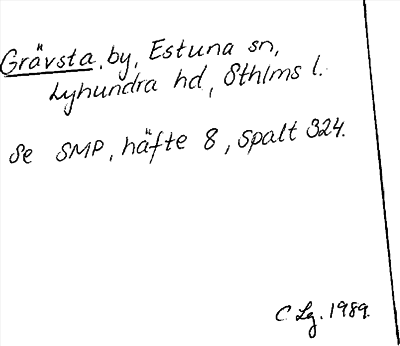 Grävsta, by, Estuna sn,
Lyhundra hd, Sthlms l.
Se SMP, häfte 8, spalt 324.
C Lg. 1989.